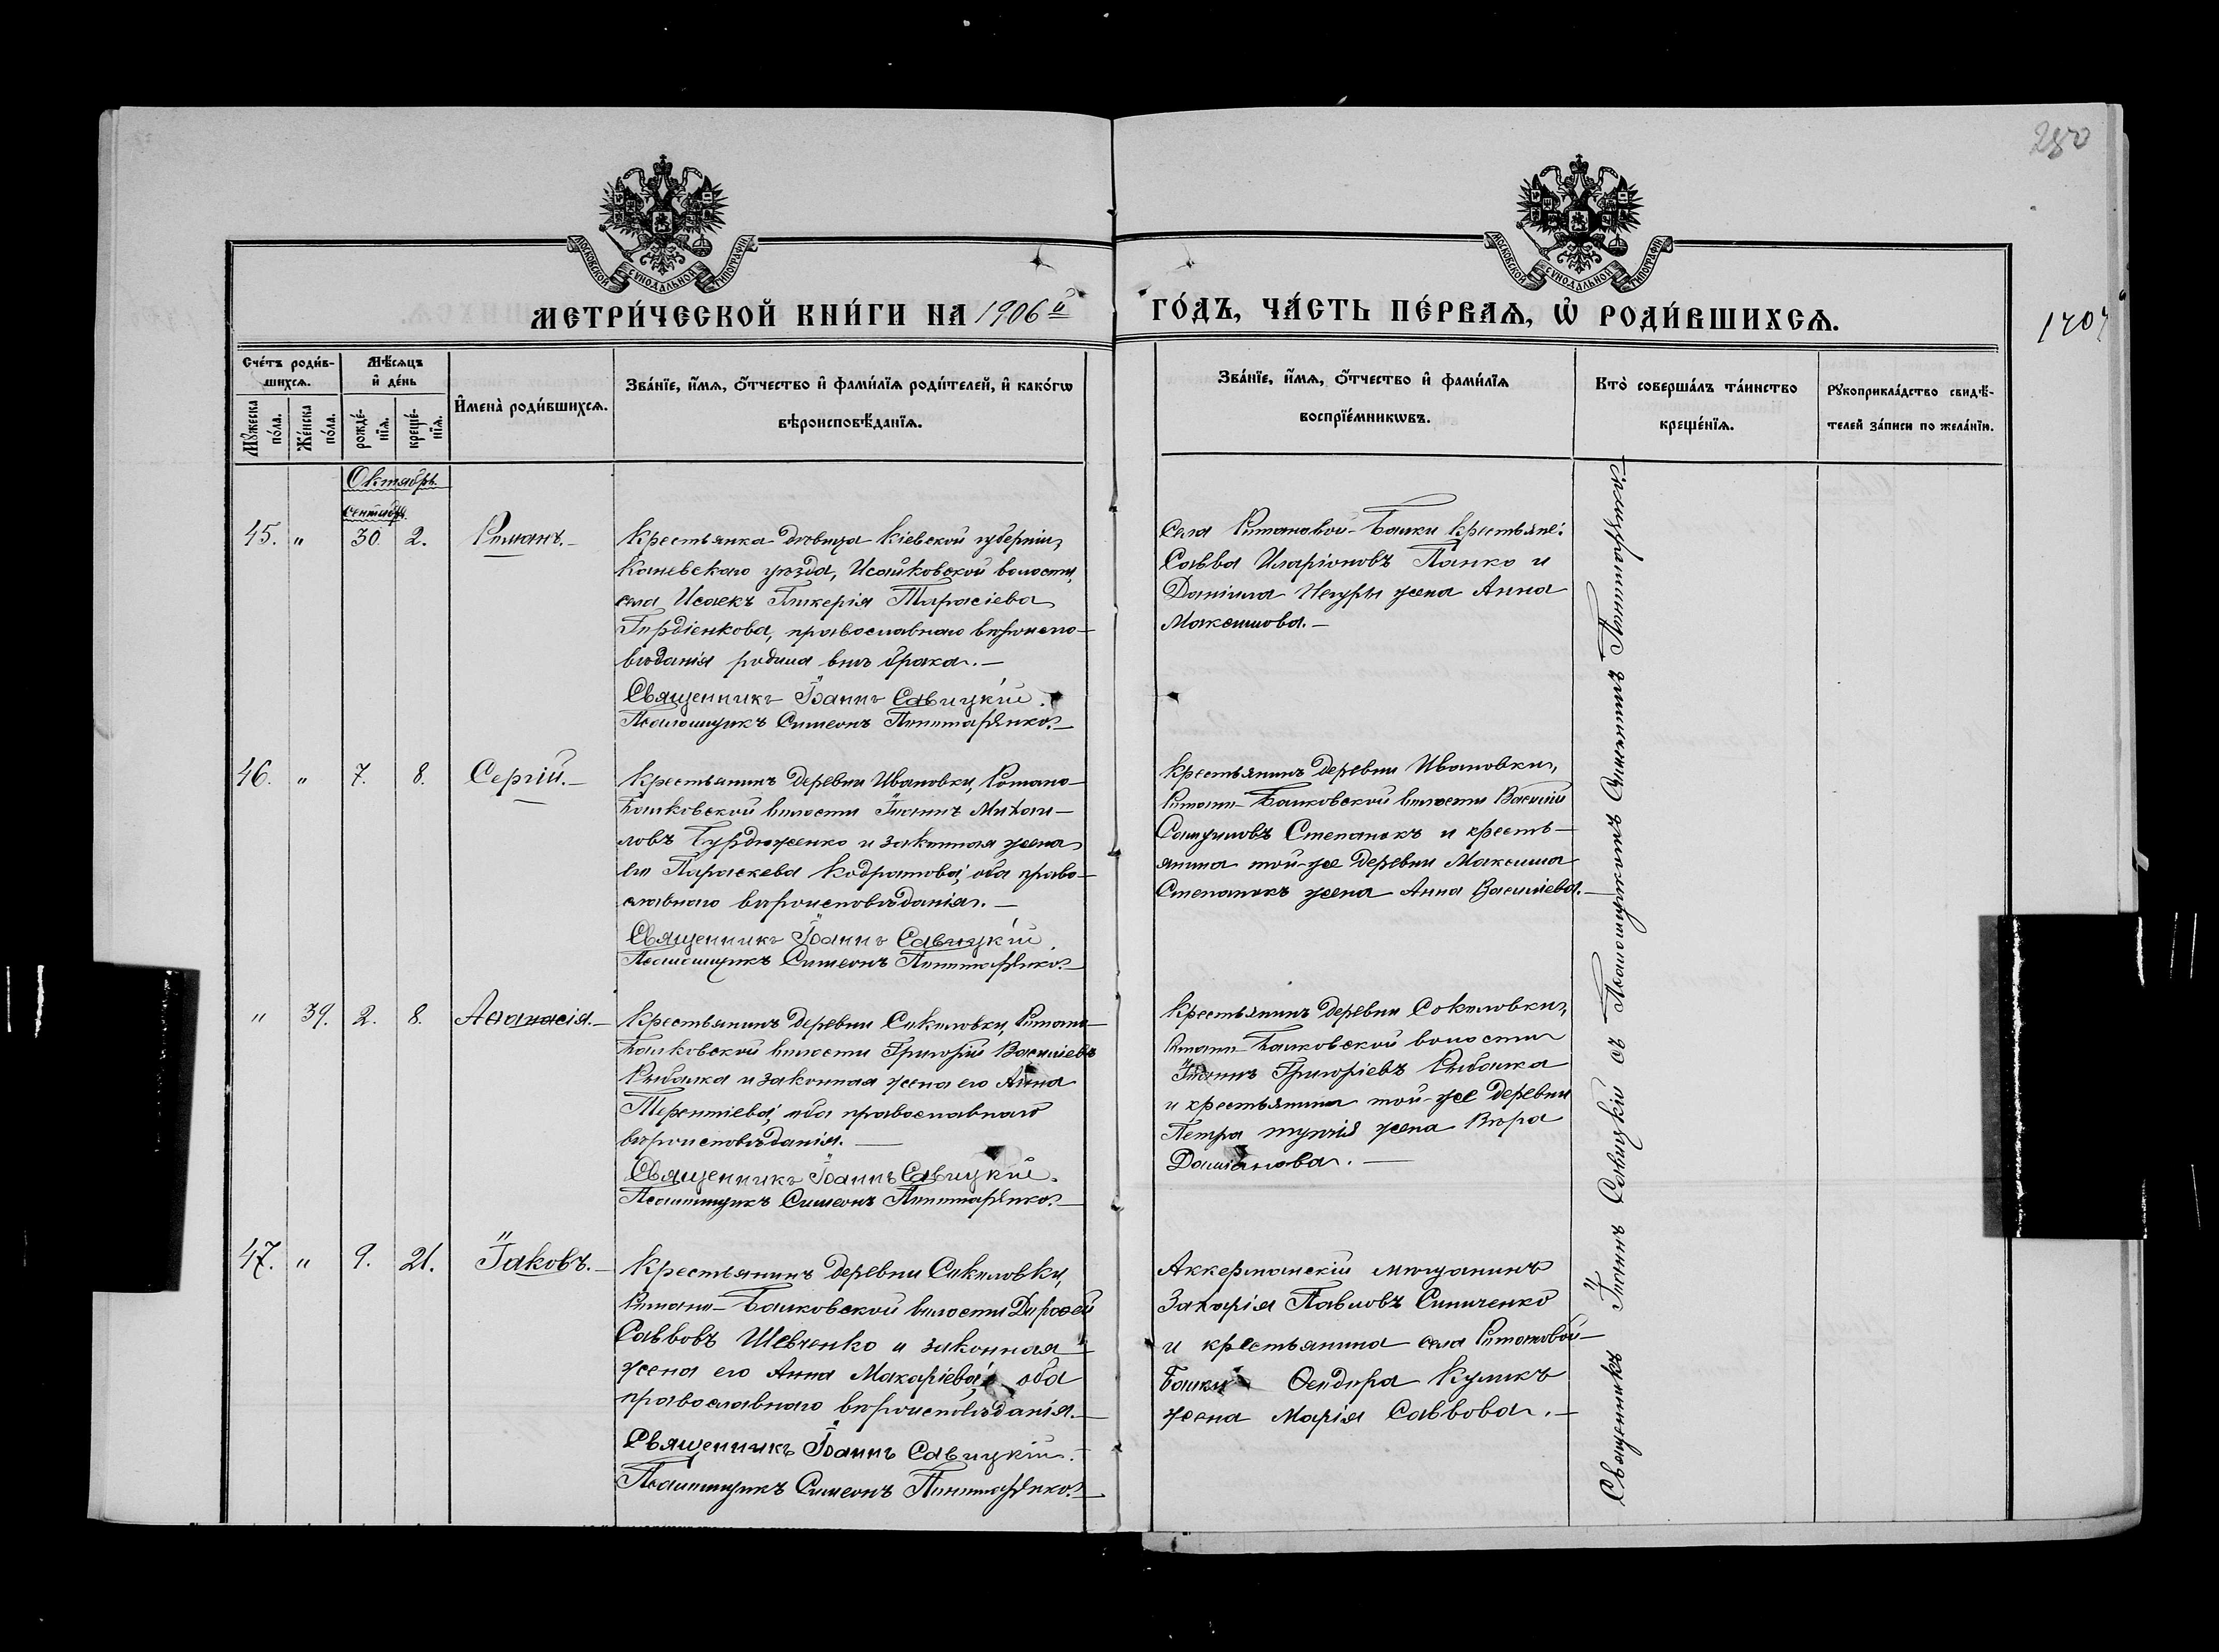 280
МОСКОВСКОЙ СѴНОДАЛЬНОЙ ТИПОГРАФІИ
МОСКОВСКОЙ СѴНОДАЛЬНОЙ ТИПОГРАФІИ
МЕТРИ́ЧЕСКОЙ КНИ́ГИ НА 1906й
ГО́ДЪ, ЧА́СТЬ ПЕ́РВАѦ, Ѽ РОДИ́ВШИХСѦ.
Сче́тъ роди́в-
шихсѧ.
Мѣ́сѧцъ
и҆ де́нь
Мꙋ́жеска
по́ла.
Же́нска
по́ла.
рожде́-
нїѧ.
креще́-
нїѧ.
И҆мена̀ роди́вшихсѧ.
Зва́нїе, и҆́мѧ, ѻ҆́тчество и҆ фами́лїѧ роди́телей, и҆ како́гѡ
вѣроисповѣ́данїѧ.
Зва́нїе, и҆́мѧ, ѻ҆́тчество и҆ фами́лїѧ
воспрїе́мникѡвъ.
Кто̀ соверша́лъ та́инство
креще́нїѧ.
Рꙋкоприкла́дство свидѣ́-
телей за́писи по жела́нїю.
Октябрь.
Сентябр.
45. " 30 2. Романъ.—
Крестьянка дѣвица Кіевской губерніи,
Каневскаго уѣзда, Исайковской волости,
села Исаекъ Гликерія Тарасіева
Гордіенкова, православнаго вѣроиспо-
вѣданія родила внѣ брака.—
Священникъ Іоаннъ Савицкій.
Псаломщикъ Симеонъ
Села Романовой-Балки крестьяне:
Савва Иларіоновъ Панко и
Даніила Негуры жена Анна
Максимова.—
46. " 7. 8. Сергій.—
Крестьянинъ деревни Ивановки, Романо-
Балковской волости Іоаннъ Михаи-
ловъ Бурдюженко и законная жена
его Параскева Кодратова, оба право-
славнаго вѣроисповѣданія.—
Священникъ Іоаннъ Савицкій.
Псаломщикъ Симеонъ
Крестьянинъ деревни Ивановки,
Романо-Балковской волости Василій
Самуиловъ Степанокъ и кресть-
янина той-же деревни Максима
Степанокъ жена Анна Василіева.—
" 39. 2. 8. Аѳанасія.—
Крестьянинъ деревни Соколовки, Романо-
Балковской волости Григорій Василіевъ
Рыбалка и законная жена его Анна
Терентіева, оба православнаго
вѣроисповѣданія.—
Священникъ Іоаннъ Савицкій.
Псаломщикъ Симеонъ
Крестьянинъ деревни Соколовки,
Романо-Балковской волости
Іоаннъ Григоріевъ Рыбалка
и крестьянина той-же деревни
Петра жена Вѣра
Даміанова.—
47. " 9. 21. Іаковъ.—
Крестьянинъ деревни Соколовки,
Романо-Балковской волости Дороѳей
Саввовъ Шевченко и законная
жена его Анна Макаріева, оба
православнаго вѣроисповѣданія.—
Священникъ Іоаннъ Савицкій.
Псаломщикъ Симеонъ
Аккерманскій мѣщанинъ
Захарія Павловъ Синиченко
и крестьянина села Романовой-
Балки Ѳеодора Куликъ
жена Марія Саввова.—
Священникъ Іоаннъ Савицкій съ Псаломщикомъ Симеономъ